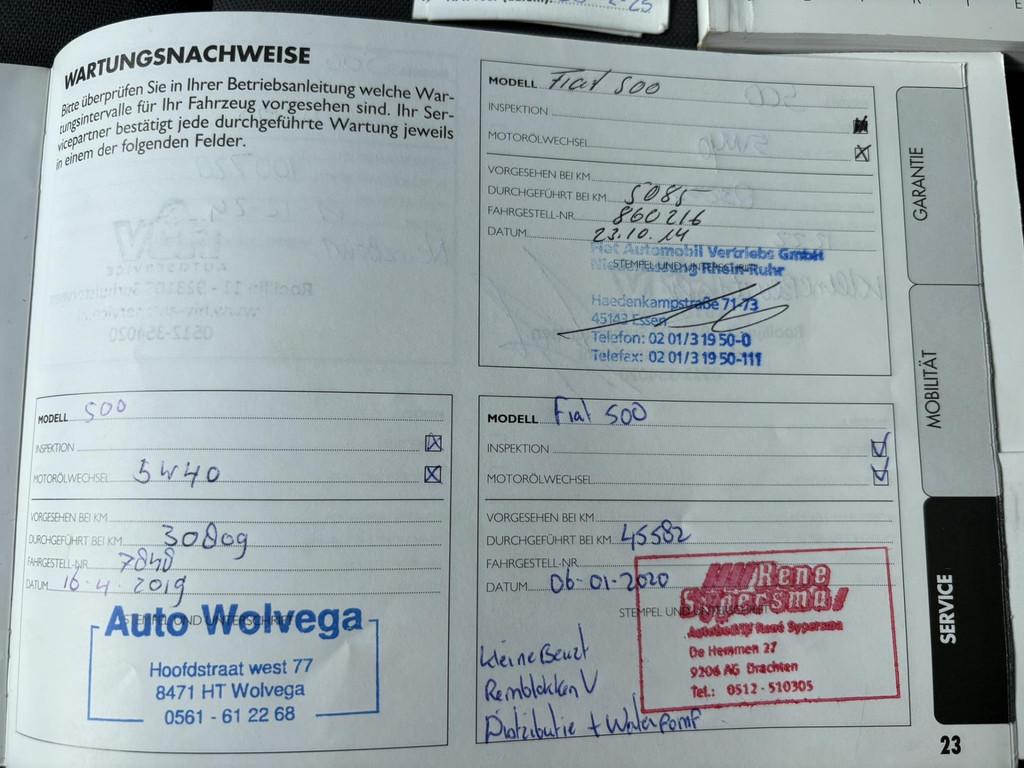 WARTUNGSNACHWEISE
Bitte überprüfen Sie in Ihrer Betriebsanleitung welche War-
tungsintervalle für Ihr Fahrzeug vorgesehen sind. Ihr Ser-
vicepartner bestätigt jede durchgeführte Wartung jeweils
in einem der folgenden Felder.
MODELL Fiat 500
INSPEKTION
MOTORÖLWECHSEL
VORGESEHEN BEI KM
DURCHGEFÜHRT BEI KM 5085
FAHRGESTELL-NR. 860216
DATUM 23.10.14
STEMPEL UND UNTERSCHRIFT
Fiat Automobil Vertriebs GmbH
Niederlassung Rhein-Ruhr
Haedenkampstraße 71-73
45143 Essen
Telefon: 02 01/3 19 50-0
Telefax: 02 01/3 19 50-111
MODELL 500
INSPEKTION
MOTORÖLWECHSEL 5W40
VORGESEHEN BEI KM
DURCHGEFÜHRT BEI KM 30809
FAHRGESTELL-NR. 7848
DATUM 16-4-2019
STEMPEL UND UNTERSCHRIFT
Auto Wolvega
Hoofdstraat west 77
8471 HT Wolvega
0561 - 61 22 68
MODELL Fiat 500
INSPEKTION
MOTORÖLWECHSEL
VORGESEHEN BEI KM
DURCHGEFÜHRT BEI KM 45582
FAHRGESTELL-NR.
DATUM 06-01-2020
STEMPEL UND UNTERSCHRIFT
Rene
Sypersma
Autobedrijf René Sypersma
De Hemmen 27
9206 AG Drachten
Tel.: 0512 - 510305
kleine Beurt
Remblokken V
Distributie + Waterpomp
GARANTIE
MOBILITÄT
SERVICE
23